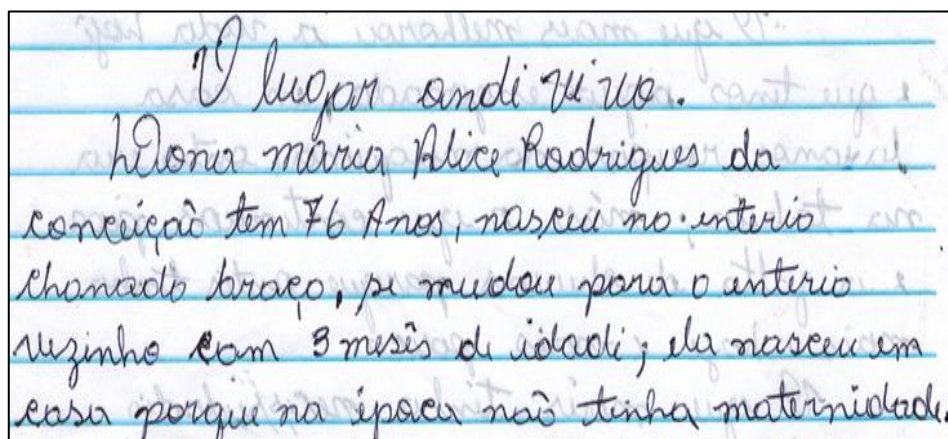 O lugar ondi vivo.
Dona maria Alice Rodrigues da
conceição tem 76 Anos, nasceu no interio
chamado braço, se mudou para o interio
vizinho com 3 mesês de idadi; ela nasceu em
casa porque na ipoca naõ tinha maternidade.